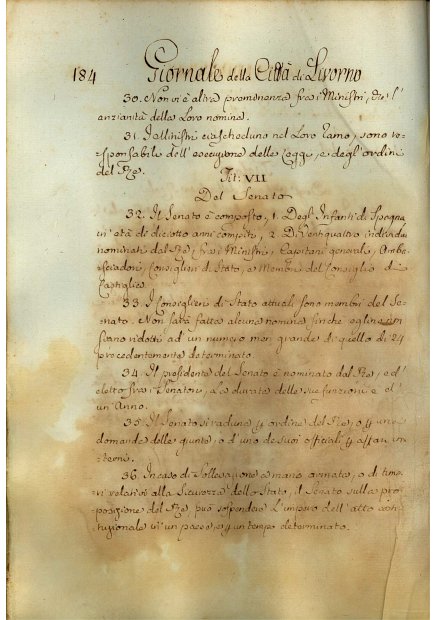 184 Giornale della Città di Livorno
30. Non vi è altra preminenza fra i Ministri, che l'
anzianità della Loro nomina.
31. I Ministri ciascheduno nel Loro ramo, sono re-
sponsabili dell'esecuzione delle Leggi, e degl'ordini
del Re.
Tit: VII
Del Senato
32. Il Senato è composto, 1. Degl'Infanti di Spagna
in età di diciotto anni compiti, 2. Di ventiquattro individui
nominati dal Re, fra i Ministri, Capitani generali, Amba-
sciadori, Consiglieri di Stato, e Membri del Consiglio di
Castiglia.
33. I Consiglieri di Stato attuali sono membri del Se-
nato. Non sarà fatta alcuna nomina finchè eglino
siano ridotti ad un numero men grande di quello di 24
precedentemente determinato.
34. Il presidente del Senato è nominato dal Re, ed
eletto fra i Senatori, La durata delle sue funzioni è d'
un Anno.
35. Il Senato si raduna ordine del Re, o
domande delle giunte, o d'uno de suoi officiali affari in-
terni.
36. In caso di Sollevazione a mano armata, o di timo-
ri relativi alla Sicurezza dello Stato, il Senato sulla pro-
posizione del Re, può sospendere L'impero dell'atto costi-
tuzionale in un paese, e un tempo determinato.